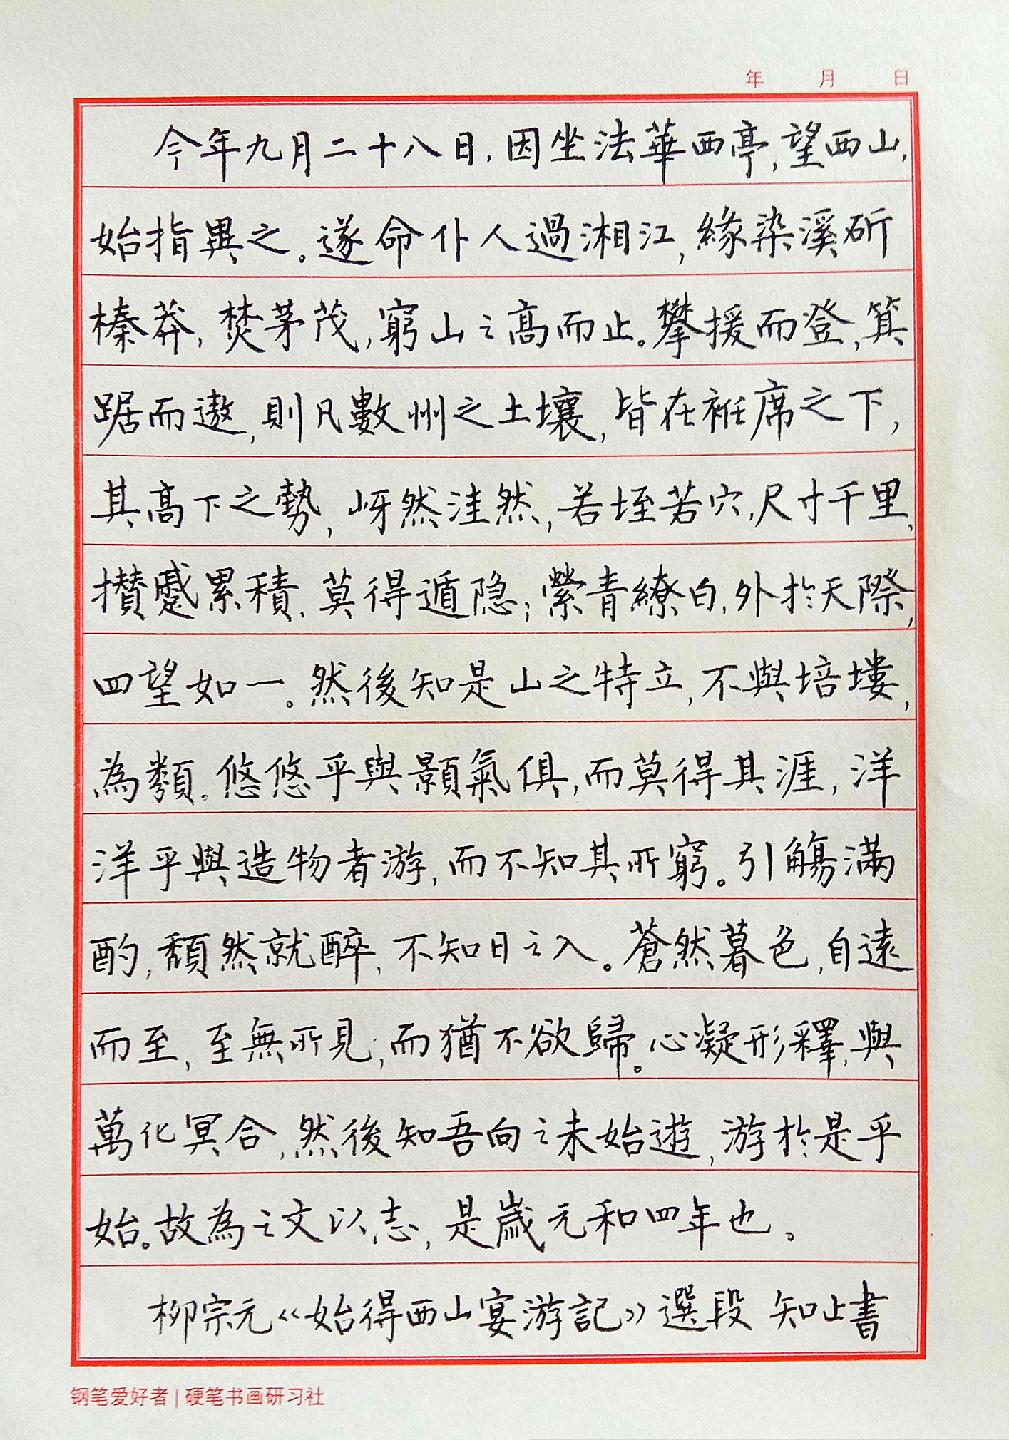 年 月 日
今年九月二十八日，因坐法華西亭，望西山，
始指異之。遂命仆人過湘江，緣染溪斫
榛莽，焚茅茂，窮山之高而止。攀援而登，箕
踞而遨，則凡數州之土壤，皆在衽席之下，
其高下之勢，岈然洼然，若垤若穴，尺寸千里，
攢蹙累積，莫得遁隐；縈青繚白，外於天際，
四望如一。然後知是山之特立，不與培塿，
為類。悠悠乎與顥氣俱，而莫得其涯，洋
洋乎與造物者游，而不知其所窮。引觴滿
酌，頹然就醉，不知日之入。蒼然暮色，自遠
而至，至無所見，而猶不欲歸。心凝形釋，與
萬化冥合，然後知吾向之未始遊，游於是乎
始。故為之文以志，是歲元和四年也。
柳宗元《始得西山宴游記》選段 知止書
钢笔爱好者 | 硬笔书画研习社